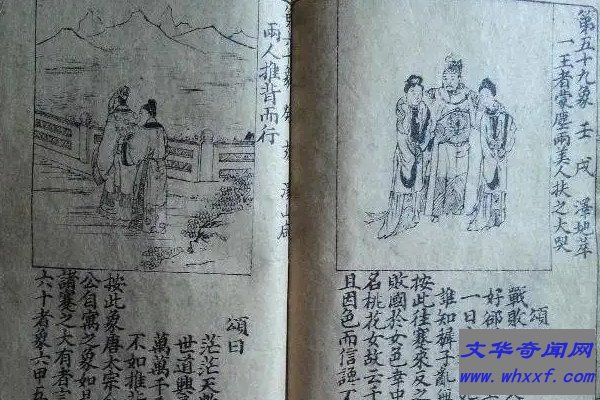 第五十九象 壬戌 澤地萃
一王者蒙塵兩美人扶之大哭
頌
戰敗
一日
誰知褲子亂無
按此往蹇來反之
敗國於女色幸中
名桃花女故云十
且因色而信讒不
兩人推背而行
頌曰
茫茫天數
世道興
萬萬千
不如推
按此象唐太宗
公自寓之象如
諸蹇之大有者言
六十者象六甲五
文华奇闻网
www.whxxf.com